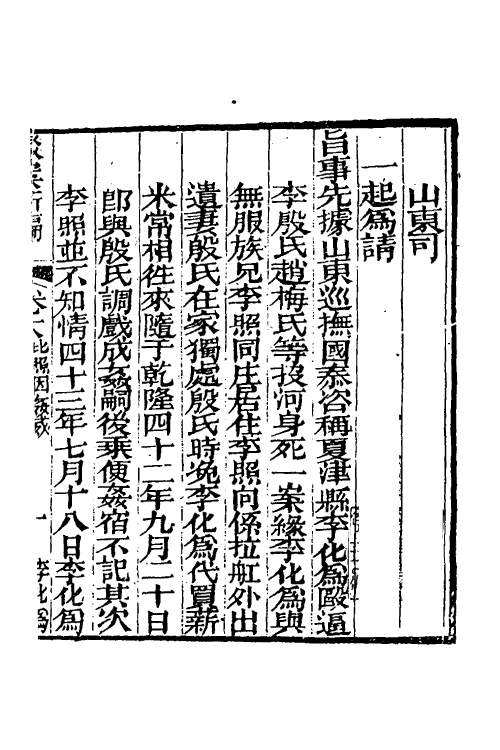 山東司
一起為請
旨事先據山東巡撫國泰咨稱夏津縣李化為毆逼
李殷氏趙梅氏等投河身死一案緣李化為與
無服族兄李照同庄居住李照向係拉船外出
遺妻殷氏在家獨處殷氏時挽李化為代買薪
米常相徃來隨于乾隆四十二年九月二十日
卽與殷氏調戲成姦嗣後乘便姦宿不記其次
李照並不知情四十三年七月十八日李化為
新編 卷十八 比照因姦威 一 李化為